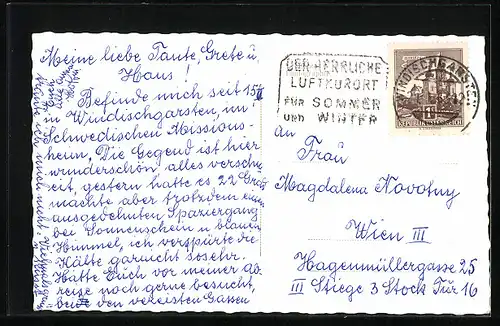 Meine liebe Tante, Grete u.
Hans!
Befinde mich seit 15.
in Windischgarsten, im
Schwedischen Missions-
heim. Die Gegend ist hier
wunderschön alles verschn
eit, gestern hatte es 22 Grad
machte aber trotzdem einen
ausgedehnten Spaziergang
bei Sonnenschein u blauen
Himmel, ich verspürte die
Kälte garnicht so sehr.
Hätte Euch vor meiner Ab
reise noch gerne besucht,
den vereisten Gassen
DER HERRLICHE
LUFTKURORT
FÜR SOMMER
UND WINTER
WINDISCHGARSTEN
An
Frau
Magdalena Novotny
Wien III
Hagenmüllergasse 25
III Stiege 3 Stock Tür 16